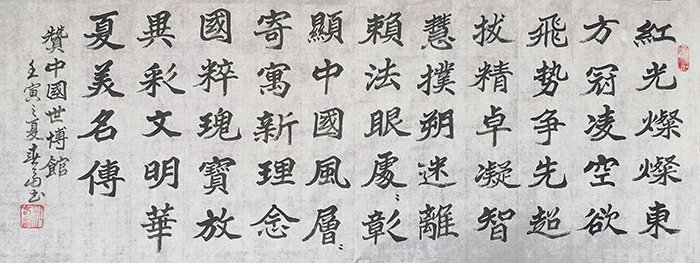 紅光燦燦東
方冠凌空欲
飛勢争先超
拔精卓凝智
慧撲朔迷離
賴法眼處〻彰
顯中國風層〻
寄寓新理念
國粹瑰寶放
異彩文明華
夏美名傳
贊中國世博館
壬寅之夏春书